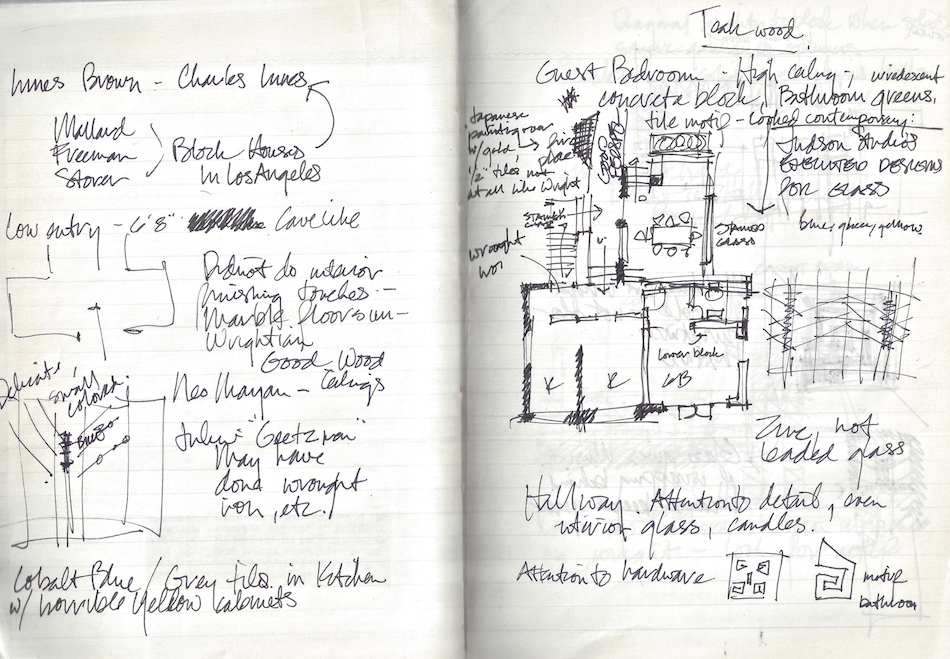 Innes Brown - Charles Innes
Millard
Freeman
Storer
Block Houses
in Los Angeles
Low entry - 6'8" Cavelike
Did not do interior
finishing touches -
Marble floors un-
Wrightian
Good Wood
Ceilings
Neo Mayan -
Delicate,
small
colored.
Julius "Goetzman"
May have
done wrought
iron, etc./
Cobalt Blue / Grey tiles in Kitchen
w/ horrible yellow cabinets
Teak wood.
Guest Bedroom - High ceiling -, iridescent
concrete block, Bathroom greens,
tile motif - looked contemporary:
Japanese
painting room
w/ gold
Fire
place
1/2" tiles not
at all like Wright
Judson Studios
EXECUTED DESIGNS
FOR GLASS
blues, greens, yellows
STAINED
GLASS
STAINED
GLASS
wrought
iron
lower block
Zinc not
leaded glass
Hallway Attention to detail, even
interior glass, candles.
Attention to hardware
motif
bathroom